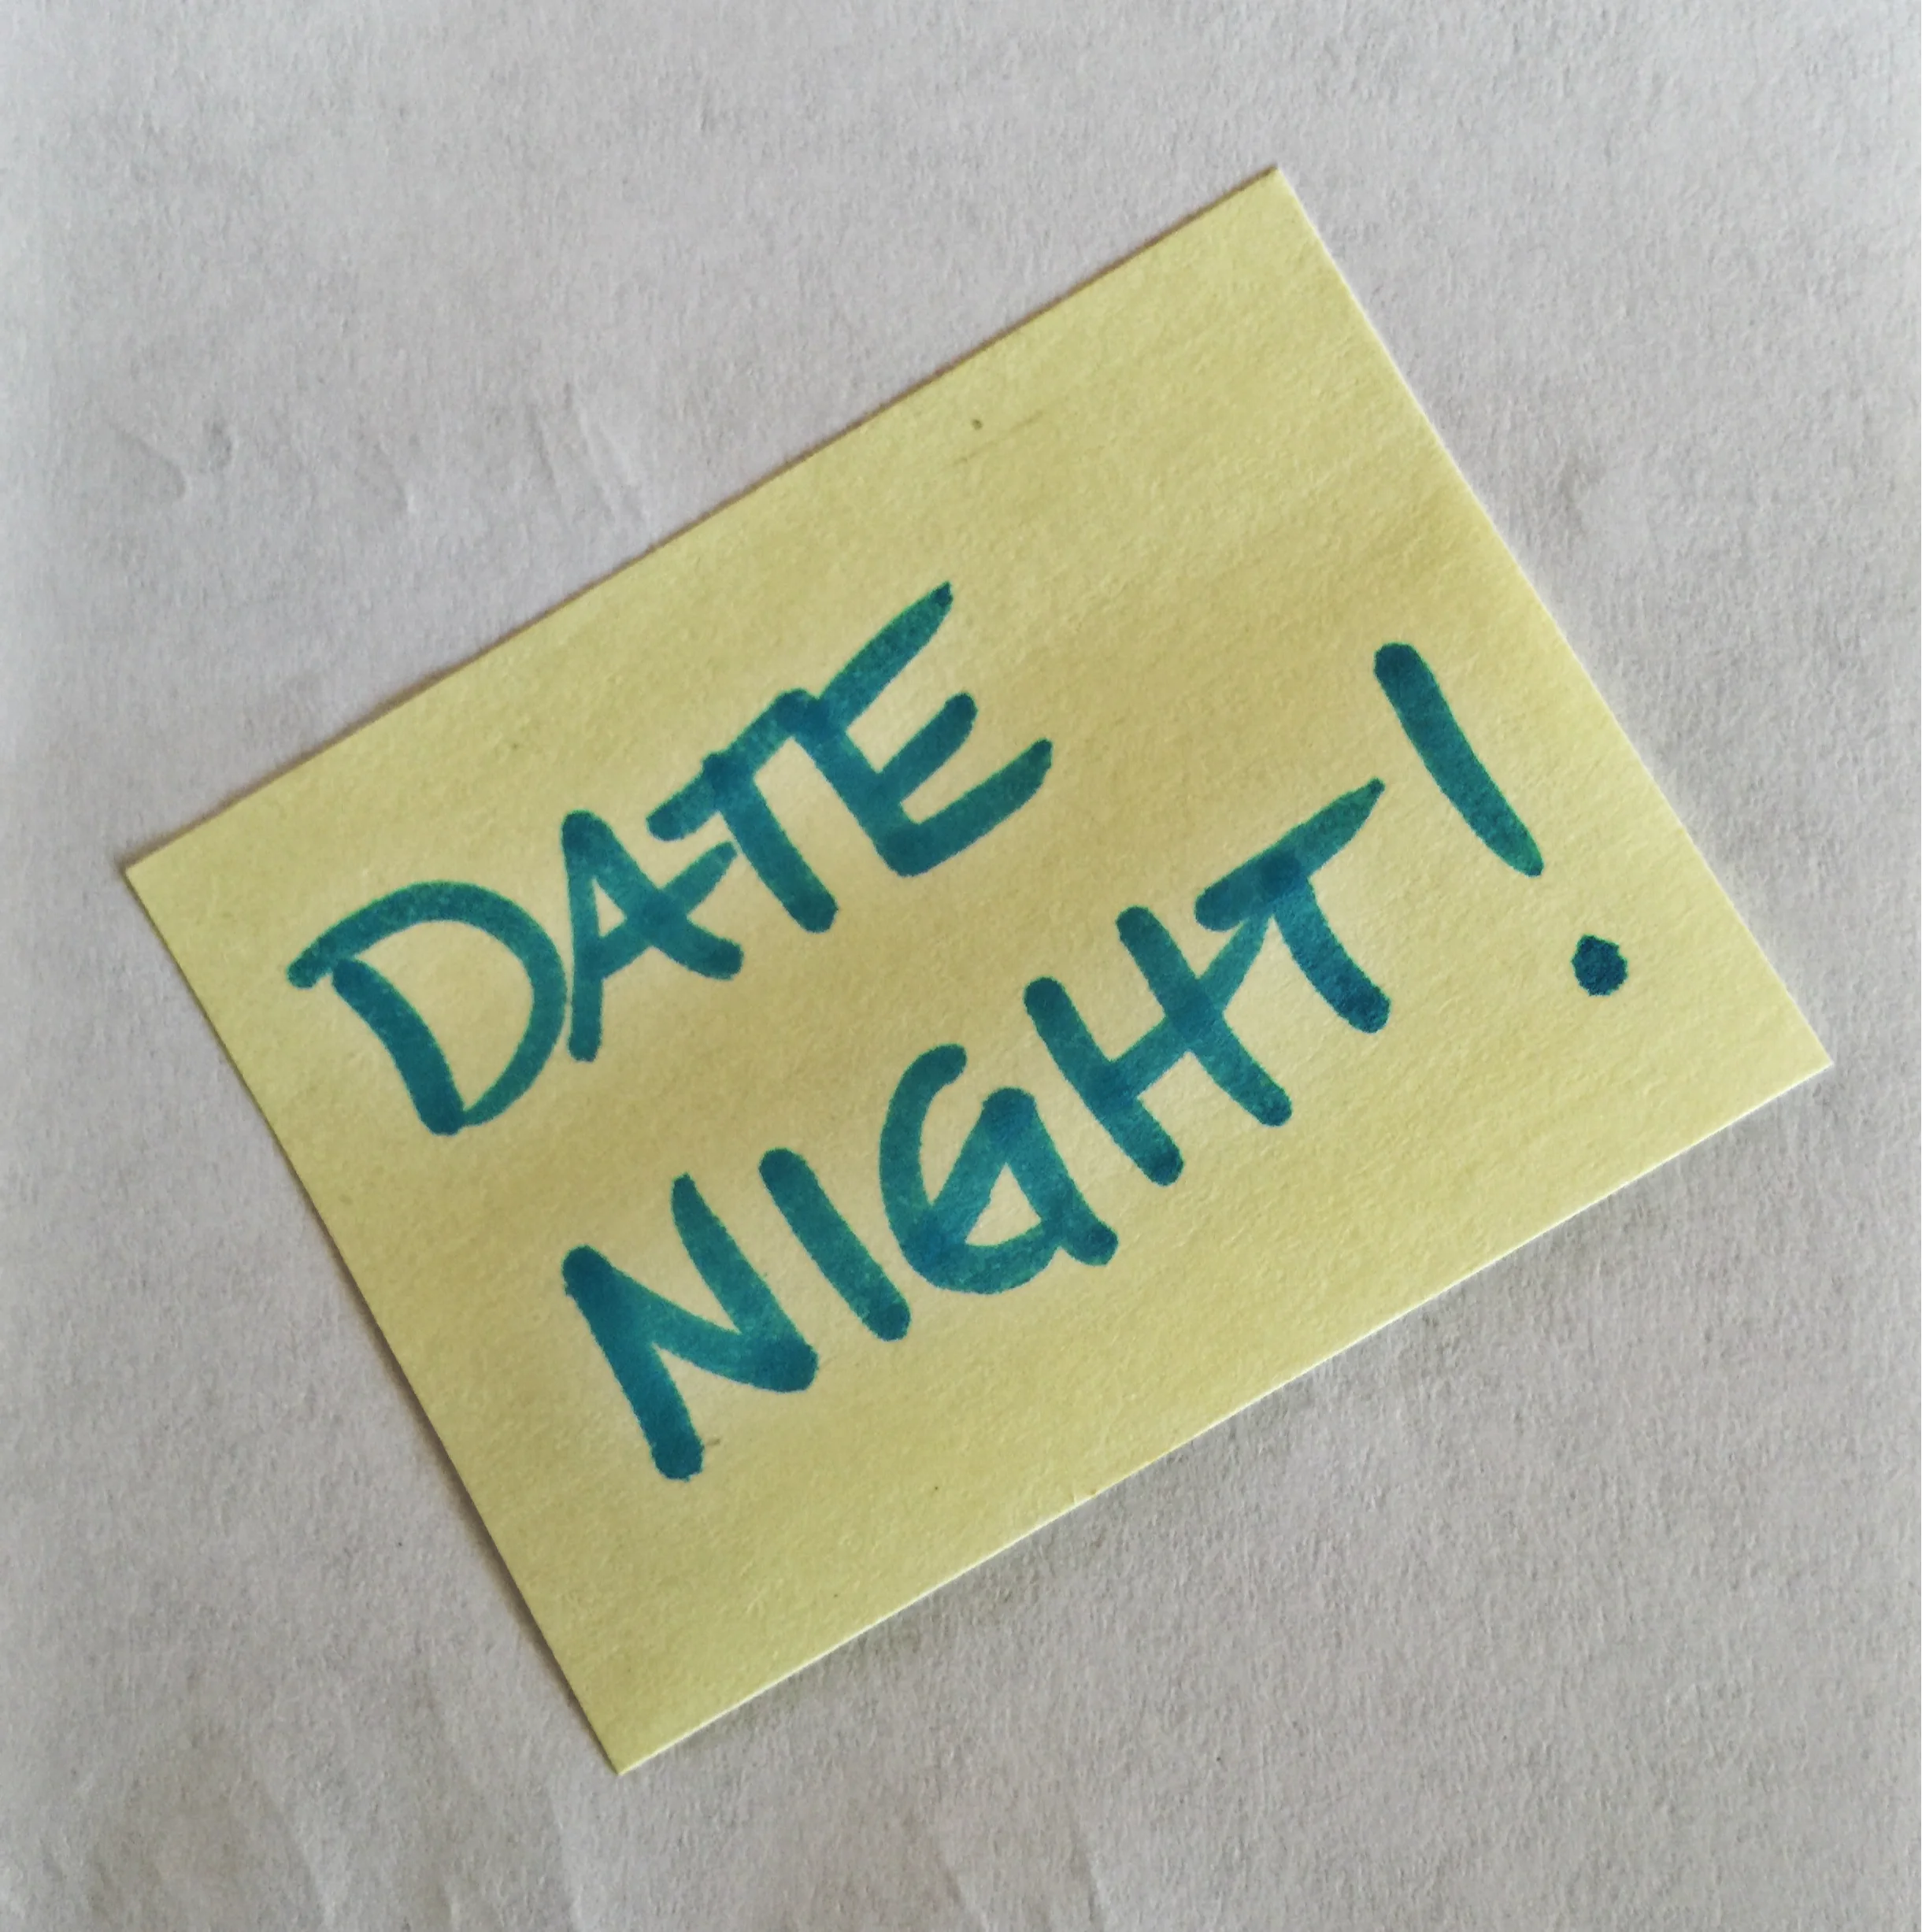 DATE
NIGHT!